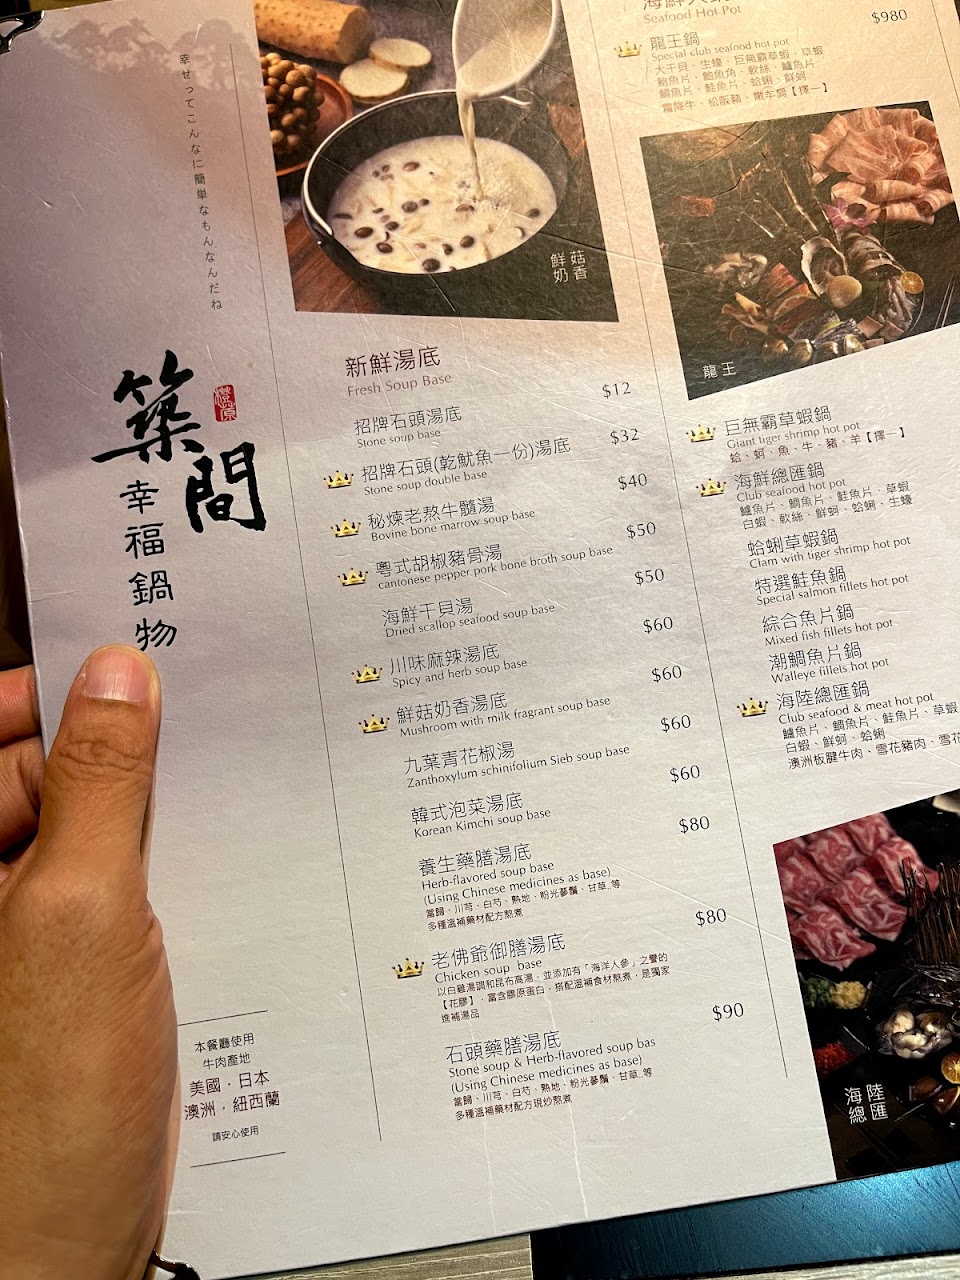 幸せってこんなに簡単なもんなんだね
築間
幸福鍋物
本餐廳使用
牛肉產地
美國．日本
澳洲．紐西蘭
請安心使用
鮮菇
奶香
新鮮湯底
Fresh Soup Base
招牌石頭湯底 $12
Stone soup base
招牌石頭(乾魷魚一份)湯底 $32
Stone soup double base
秘煉老熬牛髓湯 $40
Bovine bone marrow soup base
粵式胡椒豬骨湯 $50
cantonese pepper pork bone broth soup base
海鮮干貝湯 $50
Dried scallop seafood soup base
川味麻辣湯底 $60
Spicy and herb soup base
鮮菇奶香湯底 $60
Mushroom with milk fragrant soup base
九葉青花椒湯 $60
Zanthoxylum schinifolium Sieb soup base
韓式泡菜湯底 $60
Korean Kimchi soup base
養生藥膳湯底 $80
Herb-flavored soup base
(Using Chinese medicines as base)
當歸、川芎、白芍、熟地、粉光蔘鬚、甘草..等
多種溫補藥材配方熬煮
老佛爺御膳湯底 $80
Chicken soup base
以白雞湯調和昆布高湯，並添加有「海洋人參」之譽的
【花膠】，富含膠原蛋白，搭配溫補食材熬煮，是獨家
進補湯品
石頭藥膳湯底 $90
Stone soup & Herb-flavored soup bas
(Using Chinese medicines as base)
當歸、川芎、白芍、熟地、粉光蔘鬚、甘草..等
多種溫補藥材配方現炒熬煮
Seafood Hot Pot
龍王鍋 $980
Special club seafood hot pot
大干貝、生蠔、巨無霸草蝦、草蝦
鮑魚片、鮑魚角、軟絲、鱸魚片
鯛魚片、鮭魚片、蛤蜊、鮮蚵
霜降牛、松阪豬、嫩羊肩【擇一】
龍王
巨無霸草蝦鍋
Giant tiger shrimp hot pot
蛤、蚵、魚、牛、豬、羊【擇一】
海鮮總匯鍋
Club seafood hot pot
鱸魚片、鯛魚片、鮭魚片、草蝦
白蝦、軟絲、鮮蚵、蛤蜊、生蠔
蛤蜊草蝦鍋
Clam with tiger shrimp hot pot
特選鮭魚鍋
Special salmon fillets hot pot
綜合魚片鍋
Mixed fish fillets hot pot
潮鯛魚片鍋
Walleye fillets hot pot
海陸總匯鍋
Club seafood & meat hot pot
鱸魚片、鯛魚片、鮭魚片、草蝦
白蝦、鮮蚵、蛤蜊
澳洲板腱牛肉、雪花豬肉、雪花
海陸
總匯